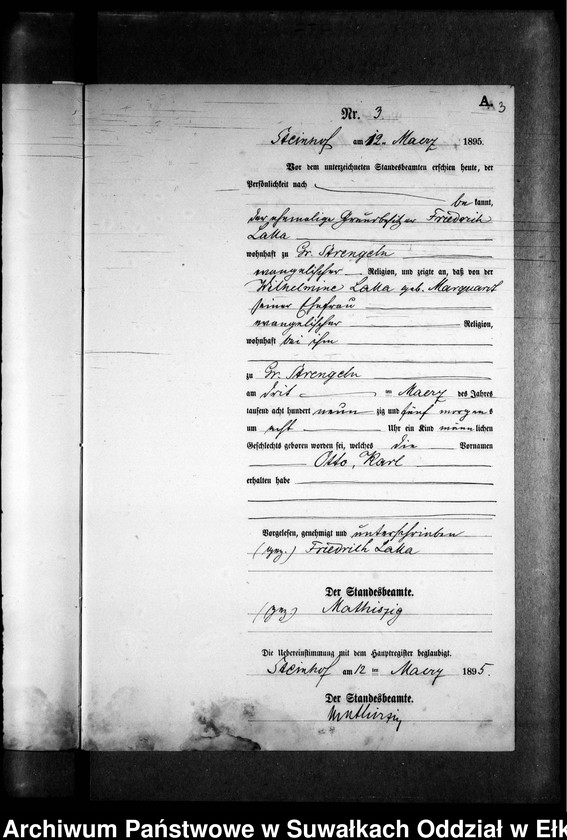 A.
3
Nr. 3.
Steinhof am 12. Maerz 1895.
Vor dem unterzeichneten Standesbeamten erschien heute, der
Persönlichkeit nach
be kannt,
der ehemalige Grundbesitzer Friedrich
Lalla
wohnhaft zu Gr. Strengeln
evangelischer Religion, und zeigte an, daß von der
Wilhelmine Lalla geb. Marquardt
seiner Ehefrau
evangelischer Religion,
wohnhaft bei ihm
zu Gr. Strengeln
am drit im Maerz des Jahres
tausend acht hundert neun zig und fünf morgens
um acht Uhr ein Kind männlichen
Geschlechts geboren worden sei, welches die Vornamen
Otto, Karl
erhalten habe
Vorgelesen, genehmigt und unterschrieben
(gez.) Friedrich Lalla
Der Standesbeamte.
(gez) Mathiszig
Die Uebereinstimmung mit dem Hauptregister beglaubigt.
Steinhof am 12 ten Maerz 1895.
Der Standesbeamte.
Mathiszig
Archiwum Państwowe w Suwałkach Oddział w Ełk